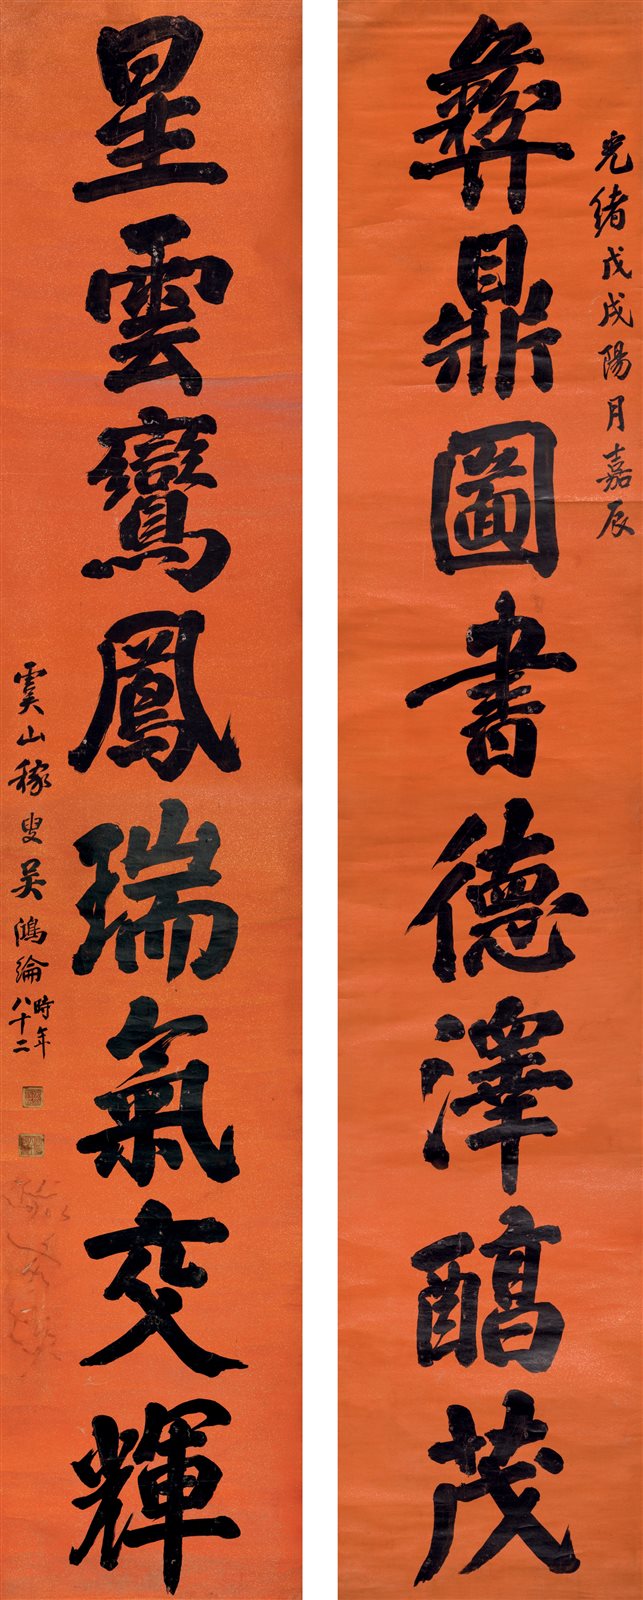 光緒戊戌陽月嘉辰
彝鼎圖書德澤醕茂
星雲鸞鳳瑞氣交輝
虞山稼叟吴鴻綸時年八十二